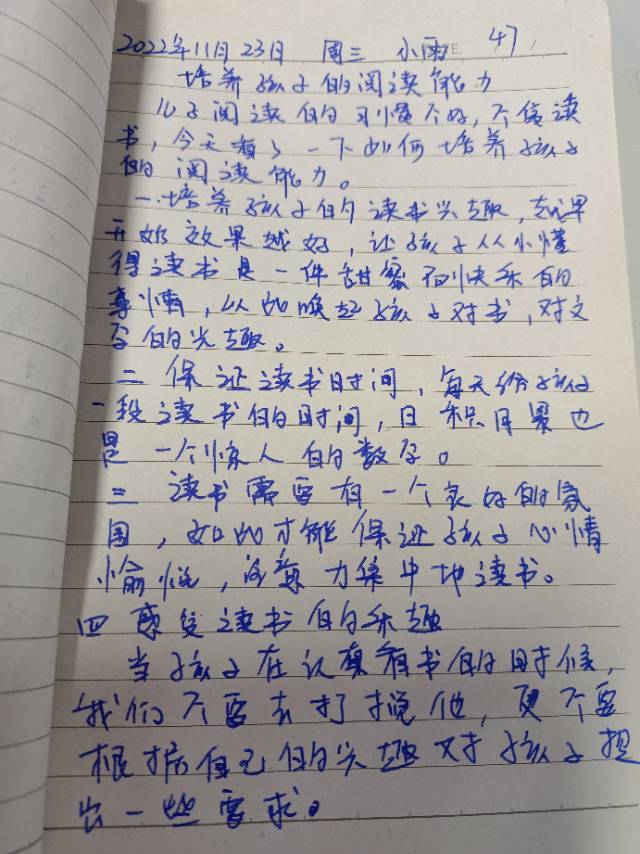 2022年11月23日 周三 小雨 47
培养孩子的阅读能力
儿子阅读的习惯不好，不爱读
书，今天看了一下如何培养孩子
的阅读能力。
一.培养孩子的读书兴趣，越早
开始效果越好，让孩子从小懂
得读书是一件甜蜜和快乐的
事情，以此唤起孩子对书，对文
字的兴趣。
二 保证读书时间，每天给孩子
一段读书的时间，日积月累也
是一个惊人的数字。
三 读书需要有一个良好的氛
围，如此才能保证孩子心情
愉悦，注意力集中地读书。
四 感受读书的乐趣
当孩子在认真看书的时候，
我们不要去打搅他，更不要
根据自己的兴趣对孩子提
出一些要求。